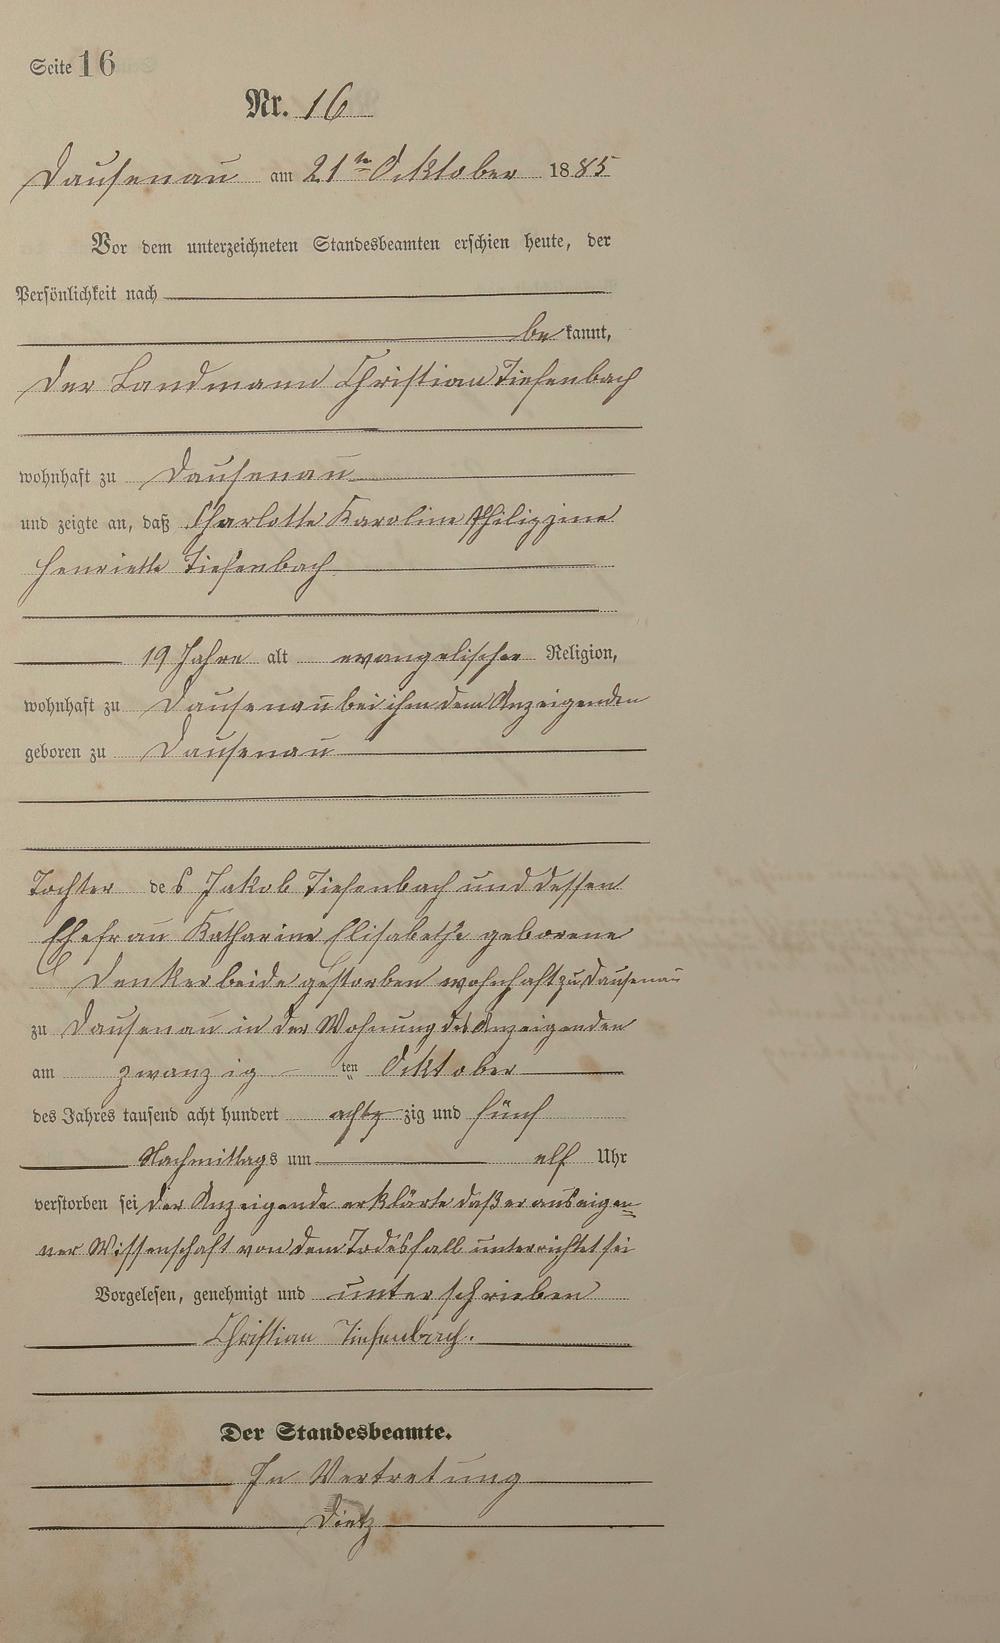 Seite 16
Nr. 16
Dausenau am 21ten Oktober 1885
Vor dem unterzeichneten Standesbeamten erschien heute, der
Persönlichkeit nach
bekannt,
Der Landmann Christian Tiefenbach
wohnhaft zu Dausenau
und zeigte an, daß Charlotte Karoline Philippine
Henriette Tiefenbach
19 Jahre alt evangelischer Religion,
wohnhaft zu Dausenau bei ihm dem Anzeigenden
geboren zu Dausenau
Tochter des Jakob Tiefenbach und dessen
Ehefrau Katharine Elisabethe geborene
Denker beide gestorben wohnhaft zu Dausenau
zu Dausenau in der Wohnung des Anzeigenden
am zwanzigten Oktober
des Jahres tausend acht hundert achtzig und fünf
Nachmittags um elf Uhr
verstorben sei Der Anzeigende erklärte daß er aus eigen=
ner Wissenschaft von dem Todesfall unterrichtet sei
Vorgelesen, genehmigt und unterschrieben
Christian Tiefenbach.
Der Standesbeamte.
In Vertretung
Dietz